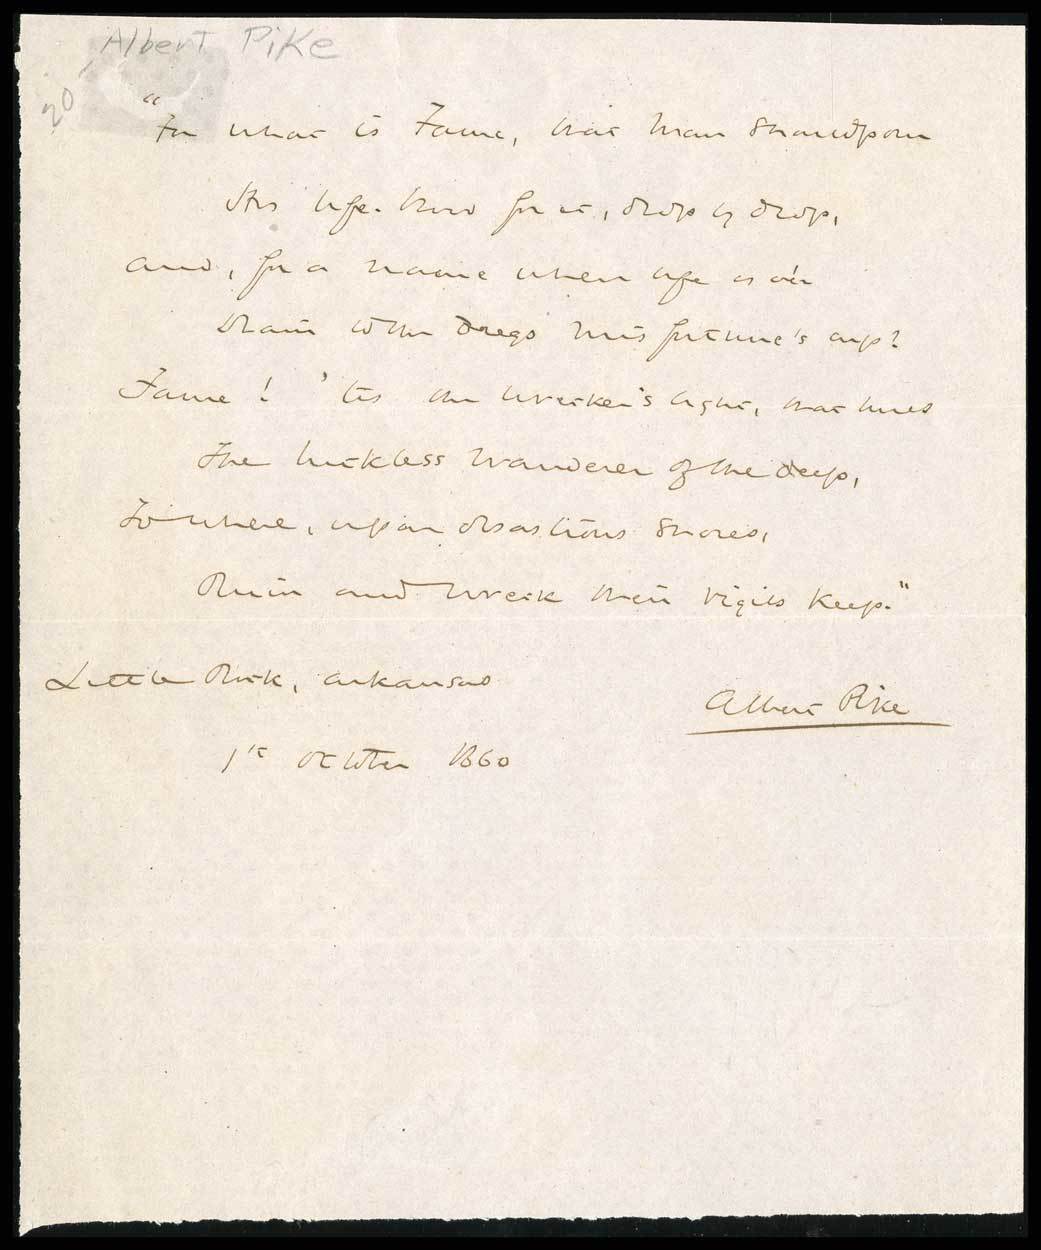 Albert Pike
20
"For what is Fame, that man should pour
His life-blood for it, drop by drop,
And, for a name when life is o'er
Drain to the dregs his fortune's cup?
Fame! 'tis the wrecker's light, that lures
The luckless wanderer of the deep,
To where, upon disastrous shores,
Ruin and wreck their vigils keep."
Little Rock, Arkansas
Albert Pike
1st October 1860